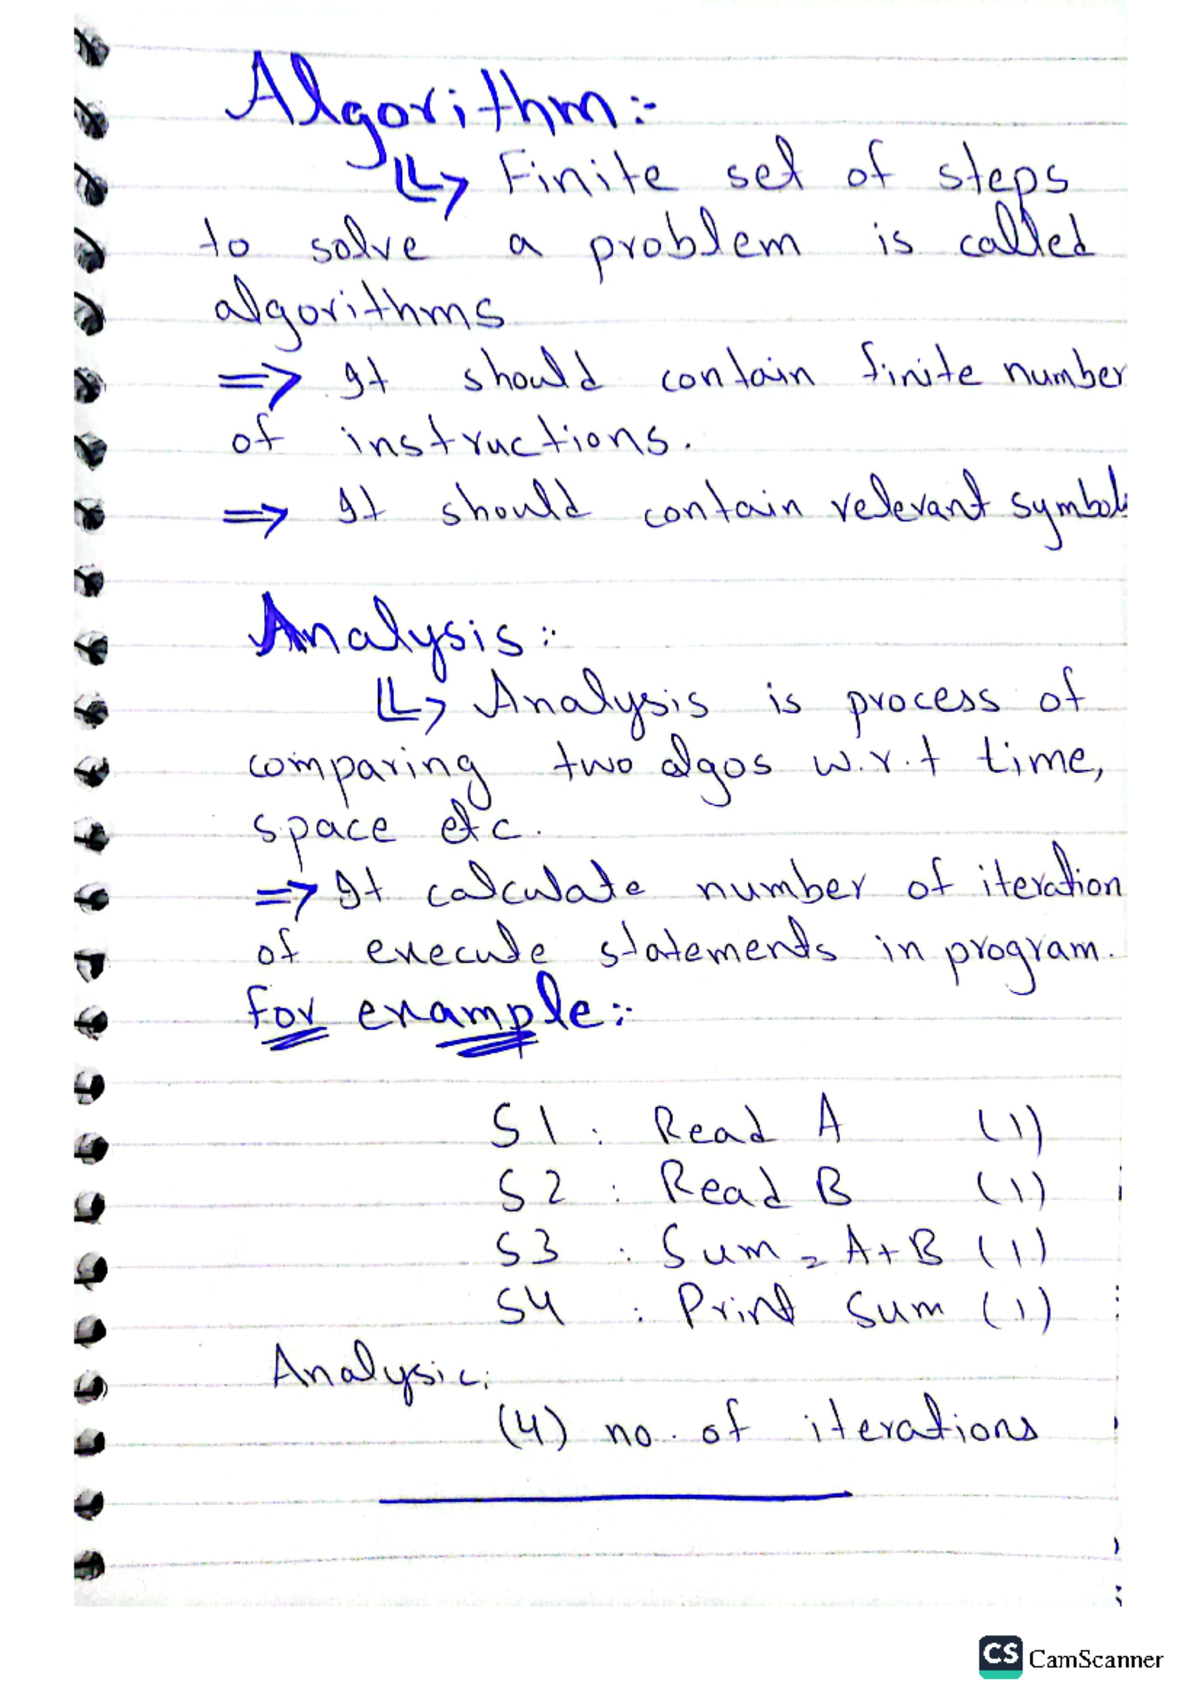 Algorithm:-
Finite set of steps
to solve a problem is called
algorithms
=> It should contain finite number
of instructions.
=> It should contain relevant symbols
Analysis:-
Analysis is process of
comparing two algos w.r.t time,
space etc.
=> It calculate number of iteration
of execute statements in program.
For example:-
S1 : Read A (1)
S2 : Read B (1)
S3 : Sum = A+B (1)
S4 : Print Sum (1)
Analysic:
(4) no. of iterations
CS CamScanner